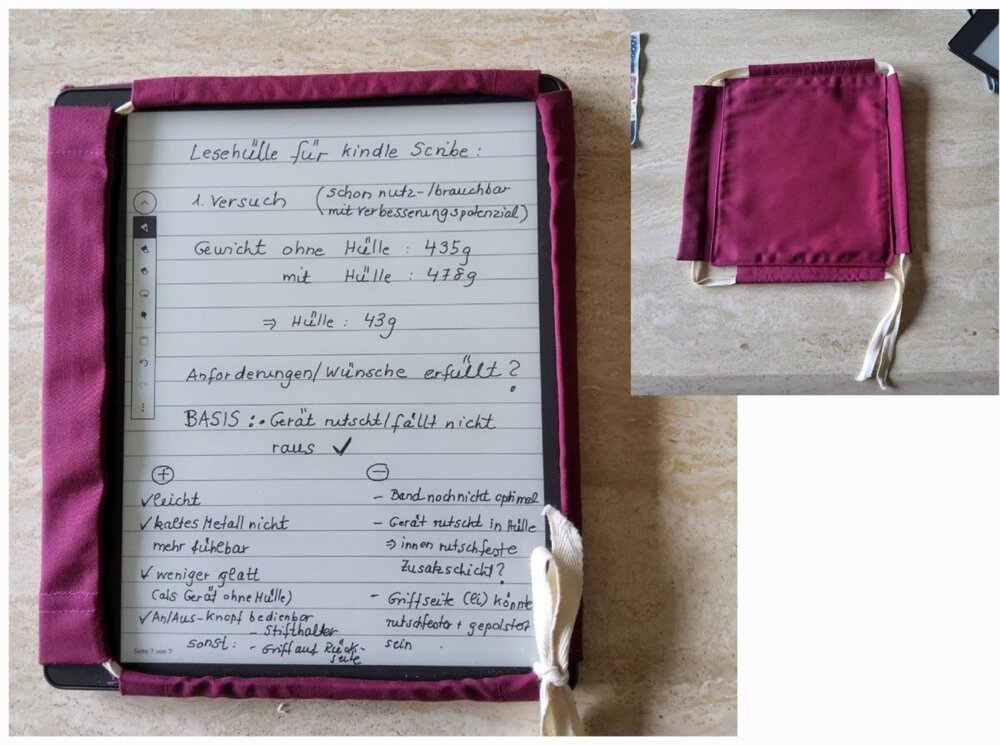 Lesehülle für kindle Scribe:
1. Versuch (schon nutz-/brauchbar
mit Verbesserungspotenzial)
Gewicht ohne Hülle: 435g
mit Hülle: 478g
⇒ Hülle: 43g
Anforderungen/Wünsche erfüllt?
BASIS: • Gerät rutscht/fällt nicht
raus ✓
⊕
✓ leicht
✓ kaltes Metall nicht
mehr fühlbar
✓ weniger glatt
(als Gerät ohne Hülle)
✓ An/Aus-Knopf bedienbar
sonst: - Stifthalter
- Griff auf Rück-
seite
⊖
- Band noch nicht optimal
- Gerät rutscht in Hülle
⇒ innen rutschfeste
Zusatzschicht?
- Griffseite (li) könnte
rutschfester + gepolstert
sein
Seite 7 von 7